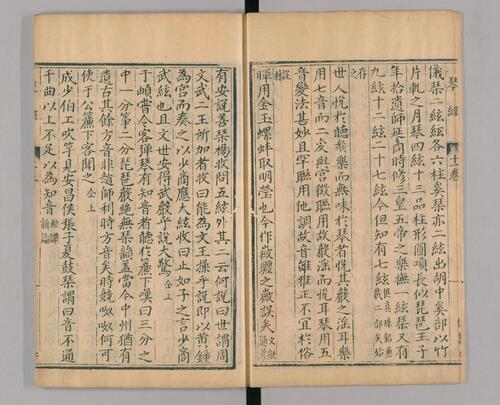 琴經
十一卷
儀琹二絃絃各六柱奚琹亦二絃出胡中奚部以竹
片軋之月琴四絃十三品柱形圓項長似琵琶王子
年拾遺師延啇時修三皇五帝之樂撫一絃琹又有
九絃十二絃二十七絃今但知有七絃
世人悅於聽𣫍樂而無味於琴者悅其𣫍之淫耳樂
用七音而二変與宮徵聮用故𣫍淫而悅耳琴用五
音變法甚妙且罕聮用他調故音雖雅正不宜於俗
暉用金玉螺蚌取明瑩也今作徽纏之徽誤矣
有安說善琹楊收問五絃外其二云何說曰世謂周
文武二王所加者收曰能為文王操乎說即以黃鍾
為宮而奏之以少商應大絃收曰止如子之言少商
武絃也且文世安得武𣫍乎說大驚仝上
于頔嘗令客彈琴有知音者聽於簾下嘆曰三分之
中一分箏二分琵琶𣫍絶無琹韻盖當今中州猶有
遺古其餘方音非趙師利時方音矣時競呶呶何可
使于公簾下客聞之仝上
成少伯工吹竿見安昌侯張子夏鼓琹謂曰音不通
千曲以上不足以為知音桓譚新論